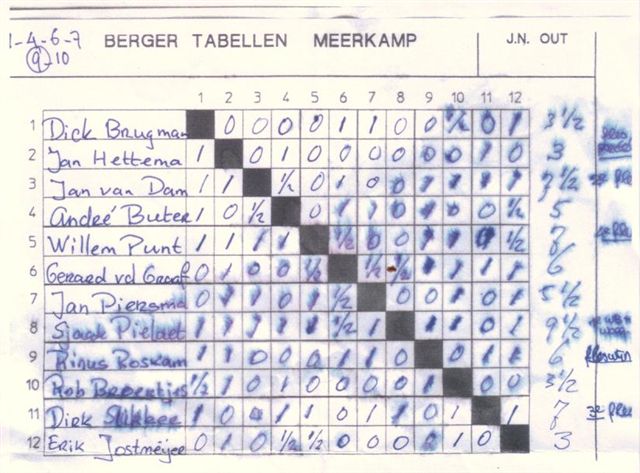 1-4-6-7
9-10
BERGER TABELLEN MEERKAMP
J.N. OUT
1 2 3 4 5 6 7 8 9 10 11 12
1 Dick Brugman 0 0 0 0 1 1 0 0 ½ 0 1 3½
2 Jan Hettema 1 0 1 0 0 0 0 0 0 1 0 3
3 Jan van Dam 1 1 ½ 0 1 0 0 1 1 1 1 7½
4 André Buter 1 0 ½ 0 1 1 0 1 0 0 ½ 5
5 Willem Punt 1 1 1 1 ½ 0 0 1 1 0 ½ 7
6 Gerard vd Graaf 0 1 0 0 ½ ½ ½ 1 1 1 6
7 Jan Piersma 0 1 1 0 1 ½ 0 0 1 0 1 5½
8 Sjaak 1 1 1 1 1 ½ 1 1 1 0 1 9½
9 Rinus Boskam 1 1 0 0 0 1 1 0 0 1 1 6
10 Rob ½ 1 0 1 0 0 0 0 1 0 0 3½
11 Dirk Slikker 1 0 0 1 1 0 1 1 0 1 1 7
12 Erik Jostmeijer 0 1 0 ½ ½ 0 0 0 0 1 0 3